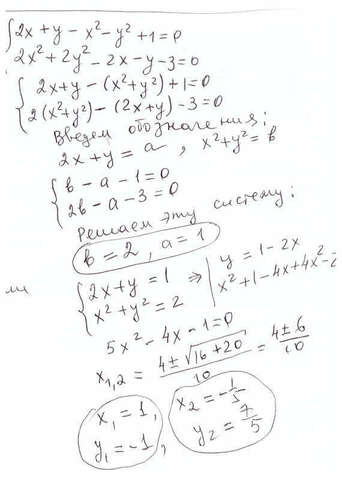 {2x + y - x² - y² + 1 = 0
2x² + 2y² - 2x - y - 3 = 0
{2x + y - (x² + y²) + 1 = 0
2(x² + y²) - (2x + y) - 3 = 0
Введем обозначения:
2x + y = a, x² + y² = b
{b - a - 1 = 0
2b - a - 3 = 0
Решаем эту систему:
b = 2, a = 1
ли {2x + y = 1 ⇒ | y = 1 - 2x
x² + y² = 2 | x² + 1 - 4x + 4x² - 2
5x² - 4x - 1 = 0
x₁,₂ = (4 ± √(16 + 20))/10 = (4 ± 6)/10
x₁ = 1, x₂ = -1/5
y₁ = -1, y₂ = 7/5